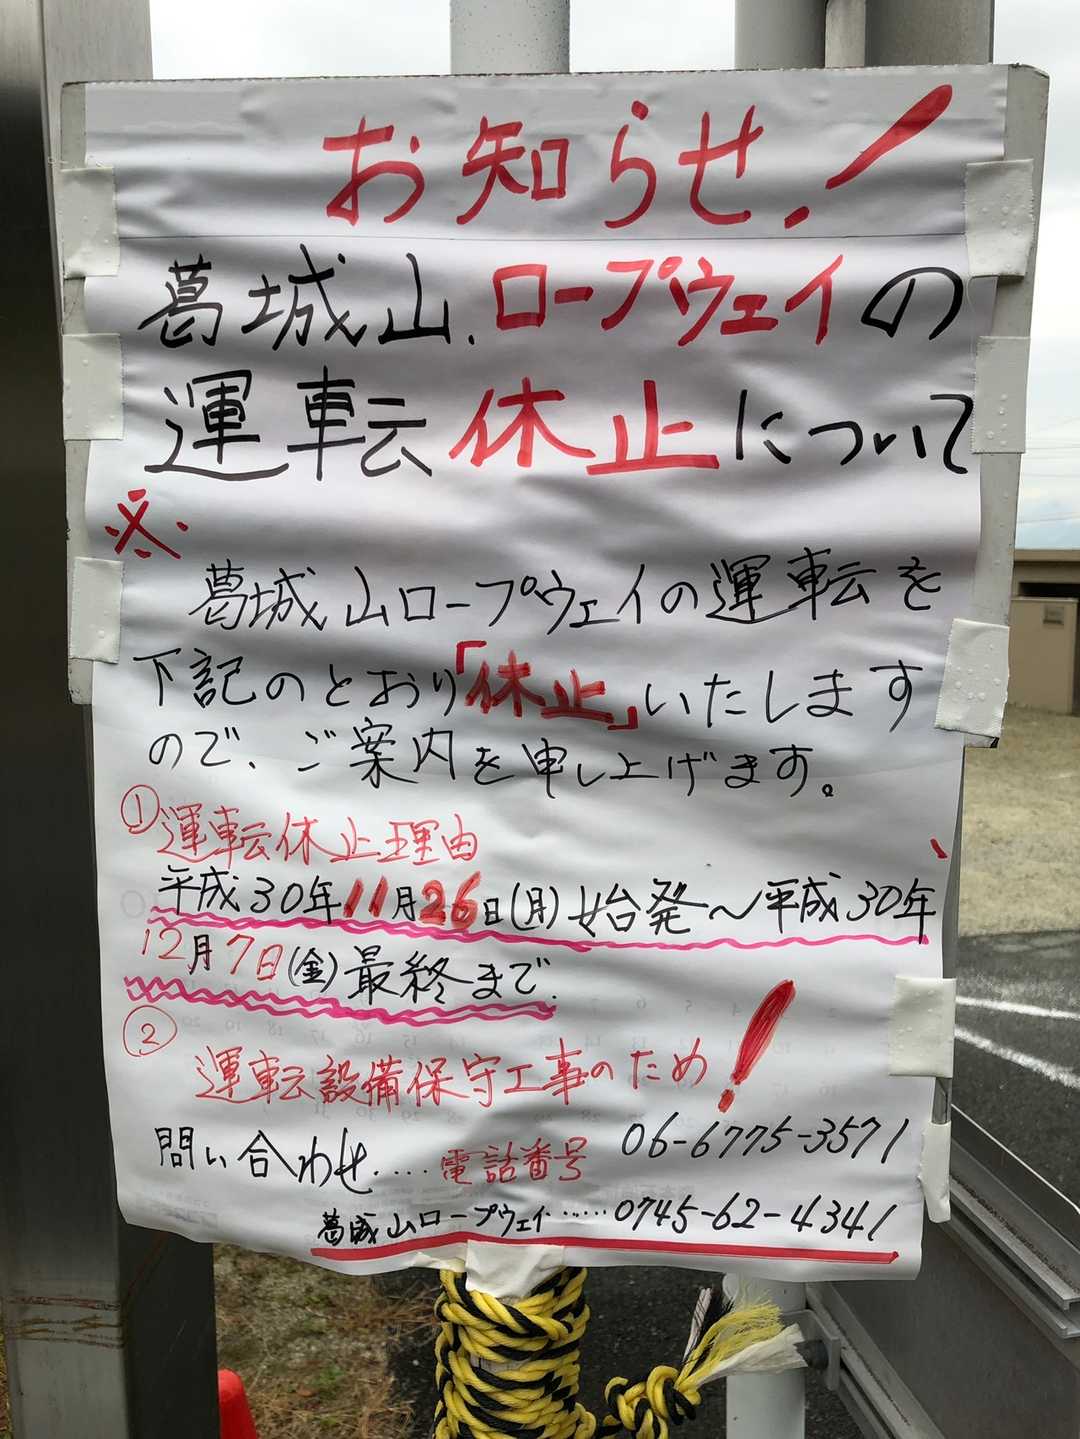 お知らせ!
葛城山.ロープウェイの
運転休止について
※
葛城山ロープウェイの運転を
下記のとおり「休止」いたします
ので、ご案内を申し上げます。
①運転休止理由
平成30年11月26日(月)始発〜平成30年
12月7日(金)最終まで.
②
運転設備保守工事のため!
問い合わせ.....電話番号 06-6775-3571
葛城山ロープウェイ......0745-62-4341